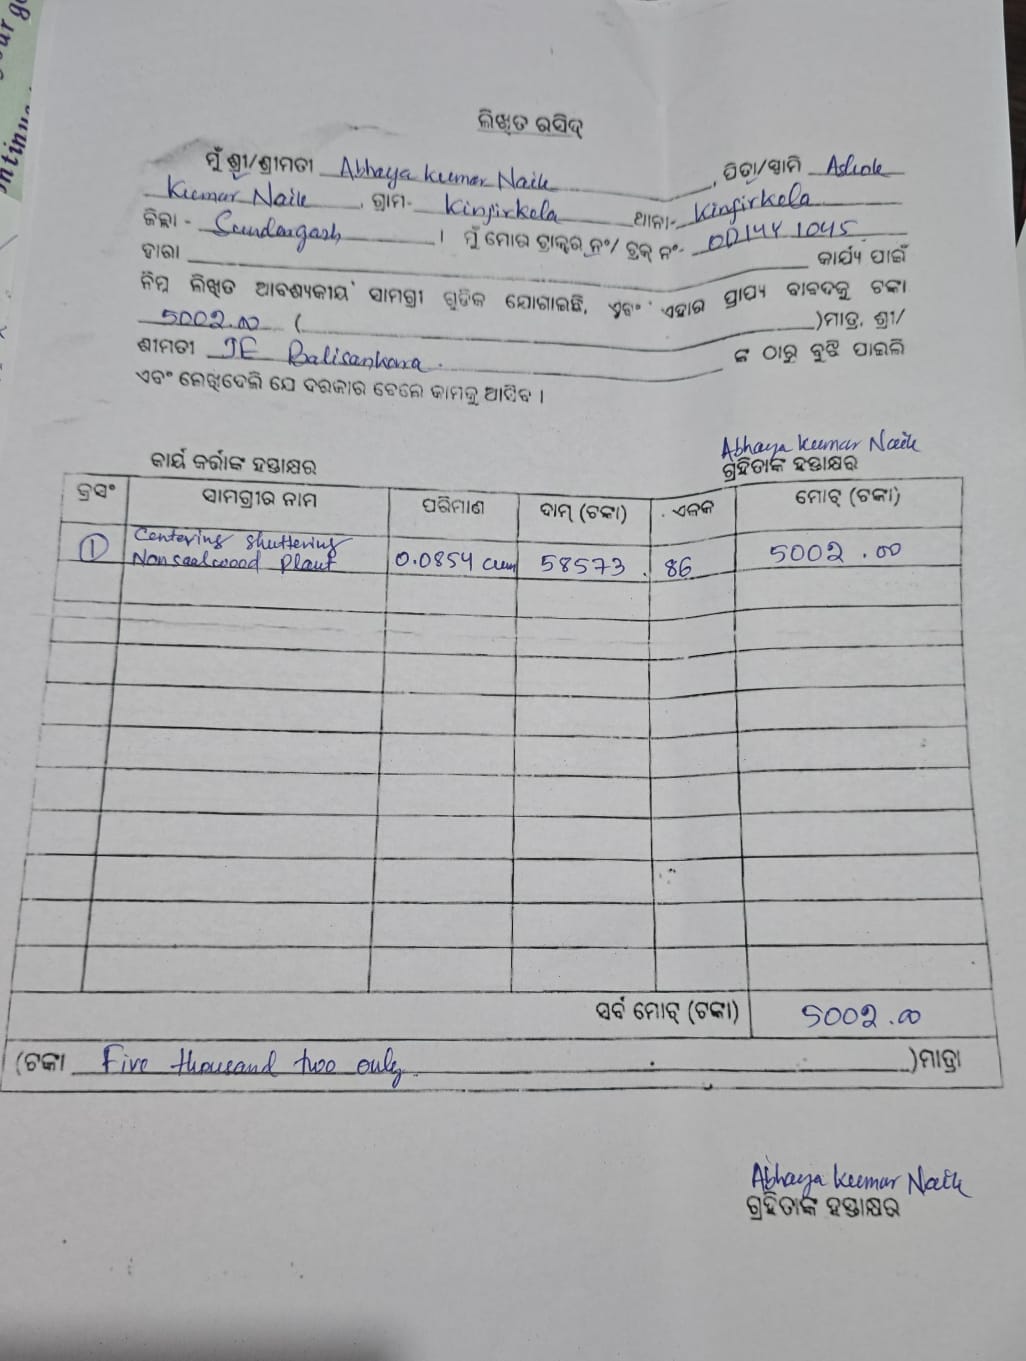 ଲିଖିତ ରସିଦ୍
ମୁଁ ଶ୍ରୀ/ଶ୍ରୀମତୀ Abhaya kumar Naik, ପିତା/ସ୍ଵାମି Ashok
Kumar Naik, ଗ୍ରାମ- Kinjirkela ଥାନା- Kinjirkela
ଜିଲ୍ଲା - Sundargarh । ମୁଁ ମୋର ଟ୍ରାକ୍ଟର ନଂ/ ଟ୍ରକ୍ ନଂ- OD14Y 1045
ଦ୍ଵାରା କାର୍ଯ୍ୟ ପାଇଁ
ନିମ୍ନ ଲିଖିତ ଆବଶ୍ୟକୀୟ ସାମଗ୍ରୀ ଗୁଡିକ ଯୋଗାଇଛି, ଏବଂ ଏହାର ପ୍ରାପ୍ୟ ବାବଦକୁ ଟଙ୍କା
5002.00 ( )ମାତ୍ର, ଶ୍ରୀ/
ଶ୍ରୀମତୀ JE Balisankara. ଙ୍କ ଠାରୁ ବୁଝି ପାଇଲି
ଏବଂ ଲେଖିଦେଲି ଯେ ଦରକାର ବେଳେ କାମକୁ ଆସିବ ।
Abhaya kumar Naik
କାର୍ଯ କର୍ତ୍ତାଙ୍କ ହସ୍ତାକ୍ଷର ଗ୍ରହିତାଙ୍କ ହସ୍ତାକ୍ଷର
କ୍ରସଂ ସାମଗ୍ରୀର ନାମ ପରିମାଣ ଦାମ୍ (ଟଙ୍କା) ଏକକ ମୋଟ୍ (ଟଙ୍କା)
Centering shuttering
① Nonsaalwood Plank 0.0854 cum 58573.86 5002.00
ସର୍ବ ମୋଟ୍ (ଟଙ୍କା) 5002.00
(ଟଙ୍କା Five thousand two only. )ମାତ୍ର।
Abhaya kumar Naik
ଗ୍ରହିତାଙ୍କ ହସ୍ତାକ୍ଷର